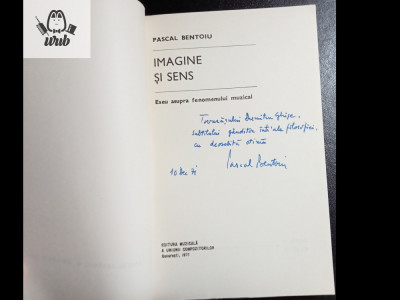 urub
PASCAL BENTOIU
IMAGINE
ȘI SENS
Eseu asupra fenomenului muzical
Tovarășului Dumitru Ghișe,
subtilului gânditor întru ale filosofiei,
cu deosebită stimă
Pascal Bentoiu
EDITURA MUZICALĂ
A UNIUNII COMPOZITORILOR
București, 1971